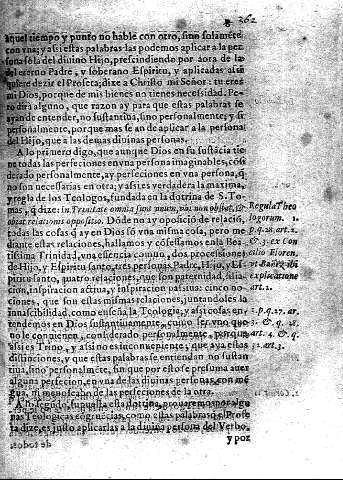 262
aquel tiempo y punto no hable con otro, sino solamẽte
con vna; y assi estas palabras las podemos aplicar a la per
sona sola del diuino Hijo, prescindiendo por aora de las
del eterno Padre, y soberano Espiritu, y aplicadas assi
quiere dezir el Profeta; dize a Christo mi Señor: tu eres
mi Dios, porque de mis bienes no tienes necessidad. Pe-
ro dirá alguno, que razon ay para que estas palabras se
ayan de entender, no sustantiua, sino personalmente; y si
personalmente, porque mas se an de aplicar a la persona
del Hijo, que a las demas diuinas personas.
A lo primero digo, que aunque Dios en su sustãcia tie
ne todas las perfeciones en vna persona imaginables, cõsi
derado personalmente, ay perfeciones en vna persona, q̃
no son necessarias en otra; y assi es verdadera la maxima,
y regla de los Teologos, fundada en la dotrina de S. To-
mas, q̃ dize: in Trinitate omnia sunt unum, ubi non obuiat,
relationis oppositio. Dõde no ay oposició de relació,
todas las cosas q̃ ay en Dios só vna misma cosa, pero me
diante estas relaciones, hallamos y cõfessamos en la Bea-
tissima Trinidad, vna essencia comun, dos processiones
de Hijo, y Espiritu santo, tres personas, Padre, Hijo, y Es-
piritu santo, quatro relaciones, que son paternidad, filia-
cion, inspiracion actiua, y inspiracion passiua: cinco no-
ciones, que son estas mismas relaciones, juntandoles la
innascibilidad, como enseña la Teologia, y assi cosas en-
tendemos en Dios sustantiuamente, como ser vno, que
no le conuienen, considerado personalmente, porque
assi es Trino, y assi no es inconueniente, que aya estas
distinciones, y que estas palabras se entiendan no sustan
tiua, sino personalmẽte, sin que por esto se presuma auer
alguna perfecion, en vna de las diuinas personas, con mẽ
gua, ni menoscabo de las perfeciones de la otra.
A lo segudo, supuesta esta dotrina, prouaremos por algu
nas Teologicas congruencias, como estas palabras q̃ el Profe
ta dize, es justo aplicarlas a la diuina persona del Verbo,
y por
Regula Theo
logorum. 1.
p. q. 28. art. 2.
& 3. ex Con
cilio Floren.
explicatione
art. 2.
1. p. q. 27. ar.